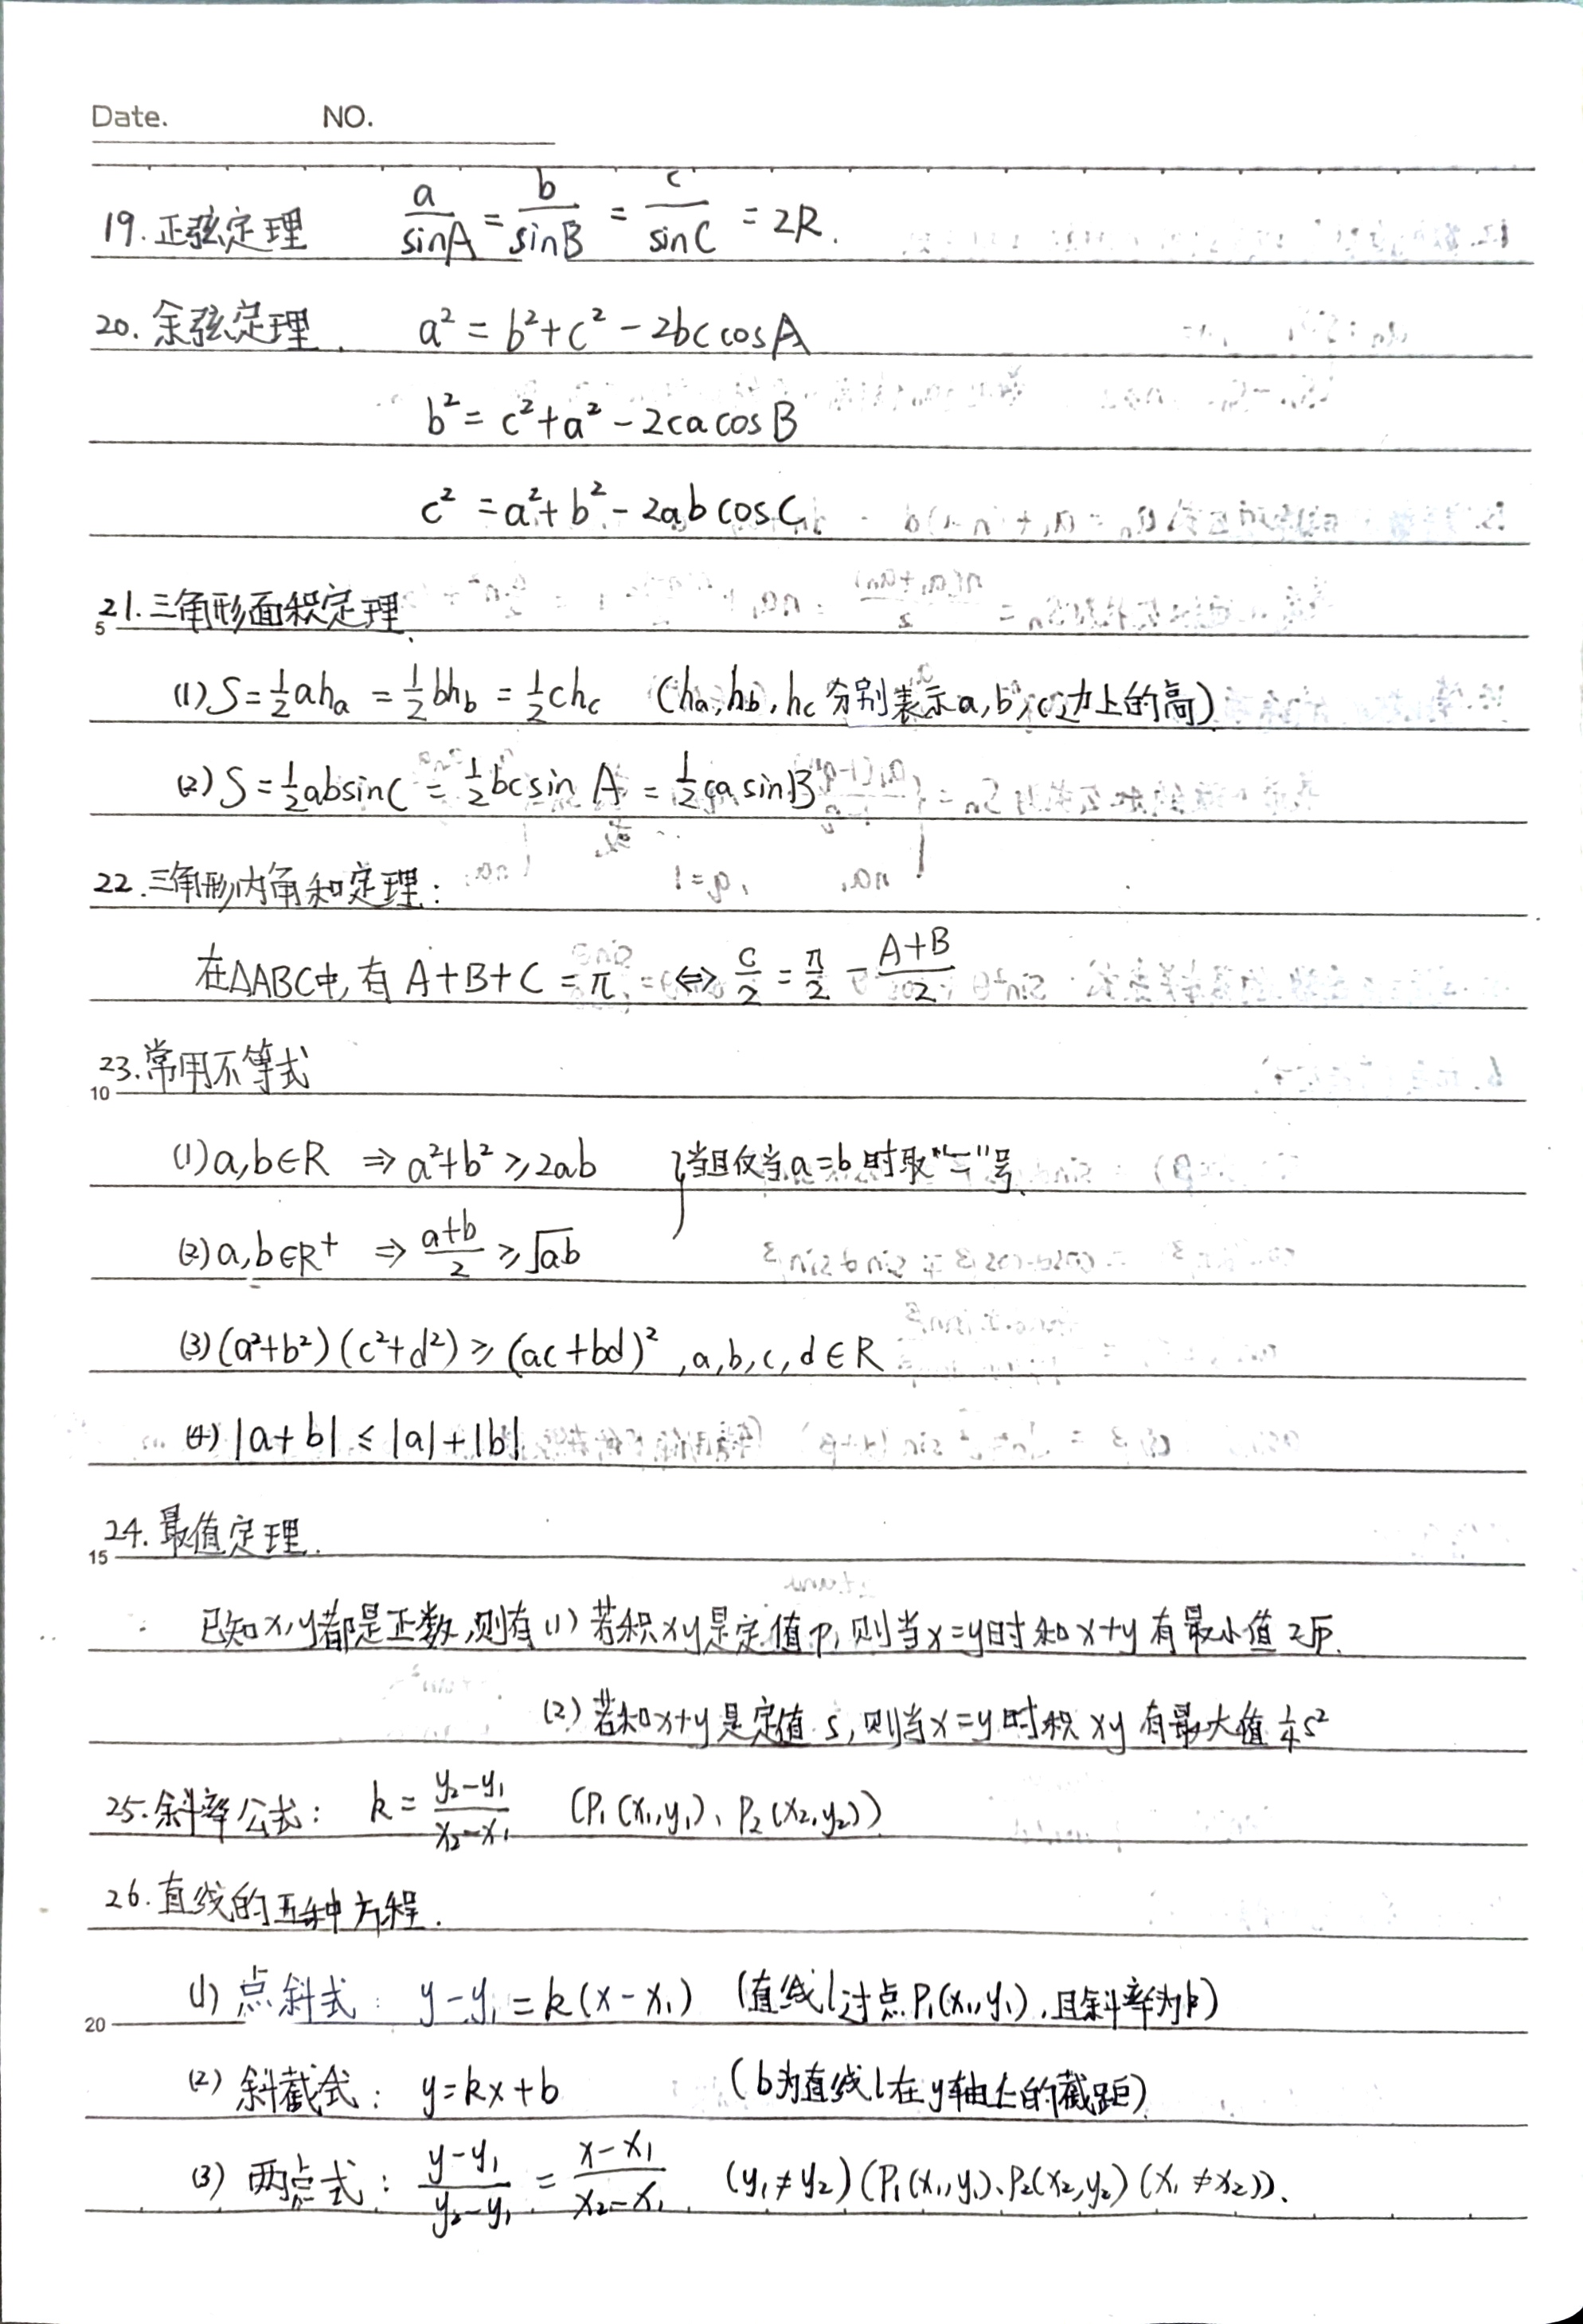 Date. NO.
19. 正弦定理 a/sinA = b/sinB = c/sinC = 2R.
20. 余弦定理. a² = b² + c² - 2bc cosA
b² = c² + a² - 2ca cosB
c² = a² + b² - 2ab cosC
21. 三角形面积定理.
5
(1) S = ½aha = ½bhb = ½chc (ha, hb, hc 分别表示a, b, c边上的高)
(2) S = ½absinC = ½bcsinA = ½casinB
22. 三角形内角和定理:
在△ABC中, 有 A+B+C = π ⇔ C/2 = π/2 - (A+B)/2
23. 常用不等式
10
(1) a,b∈R ⇒ a²+b² ≥ 2ab } 当且仅当a=b时取"="号.
(2) a,b∈R⁺ ⇒ (a+b)/2 ≥ √ab
(3) (a²+b²)(c²+d²) ≥ (ac+bd)², a,b,c,d∈R
(4) |a+b| ≤ |a|+|b|
24. 最值定理.
15
已知x,y都是正数, 则有(1) 若积xy是定值p, 则当x=y时和x+y有最小值2√p.
(2) 若和x+y是定值s, 则当x=y时积xy有最大值¼s²
25. 斜率公式: k = (y₂-y₁)/(x₂-x₁) (P₁(x₁,y₁)、P₂(x₂,y₂))
26. 直线的五种方程.
(1) 点斜式: y-y₁ = k(x-x₁) (直线l过点P₁(x₁,y₁), 且斜率为k)
20
(2) 斜截式: y=kx+b (b为直线l在y轴上的截距)
(3) 两点式: (y-y₁)/(y₂-y₁) = (x-x₁)/(x₂-x₁) (y₁≠y₂)(P₁(x₁,y₁)、P₂(x₂,y₂)(x₁≠x₂)).